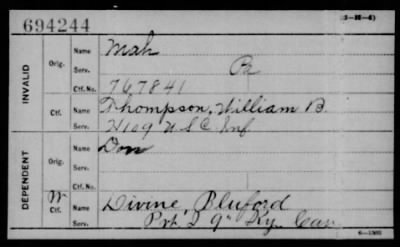 694244
(3-36-6)
INVALID
Orig.
Name
Mah
Serv.
B
Ctf. No.
767841
Ctf.
Name
Thompson, William B.
Serv.
H 109 U S C Inf
DEPENDENT
Orig.
Name
Serv.
Ctf. No.
W
Ctf.
Name
Divine, Bluford
Serv.
Pvt. D 9" Ky. Cav.